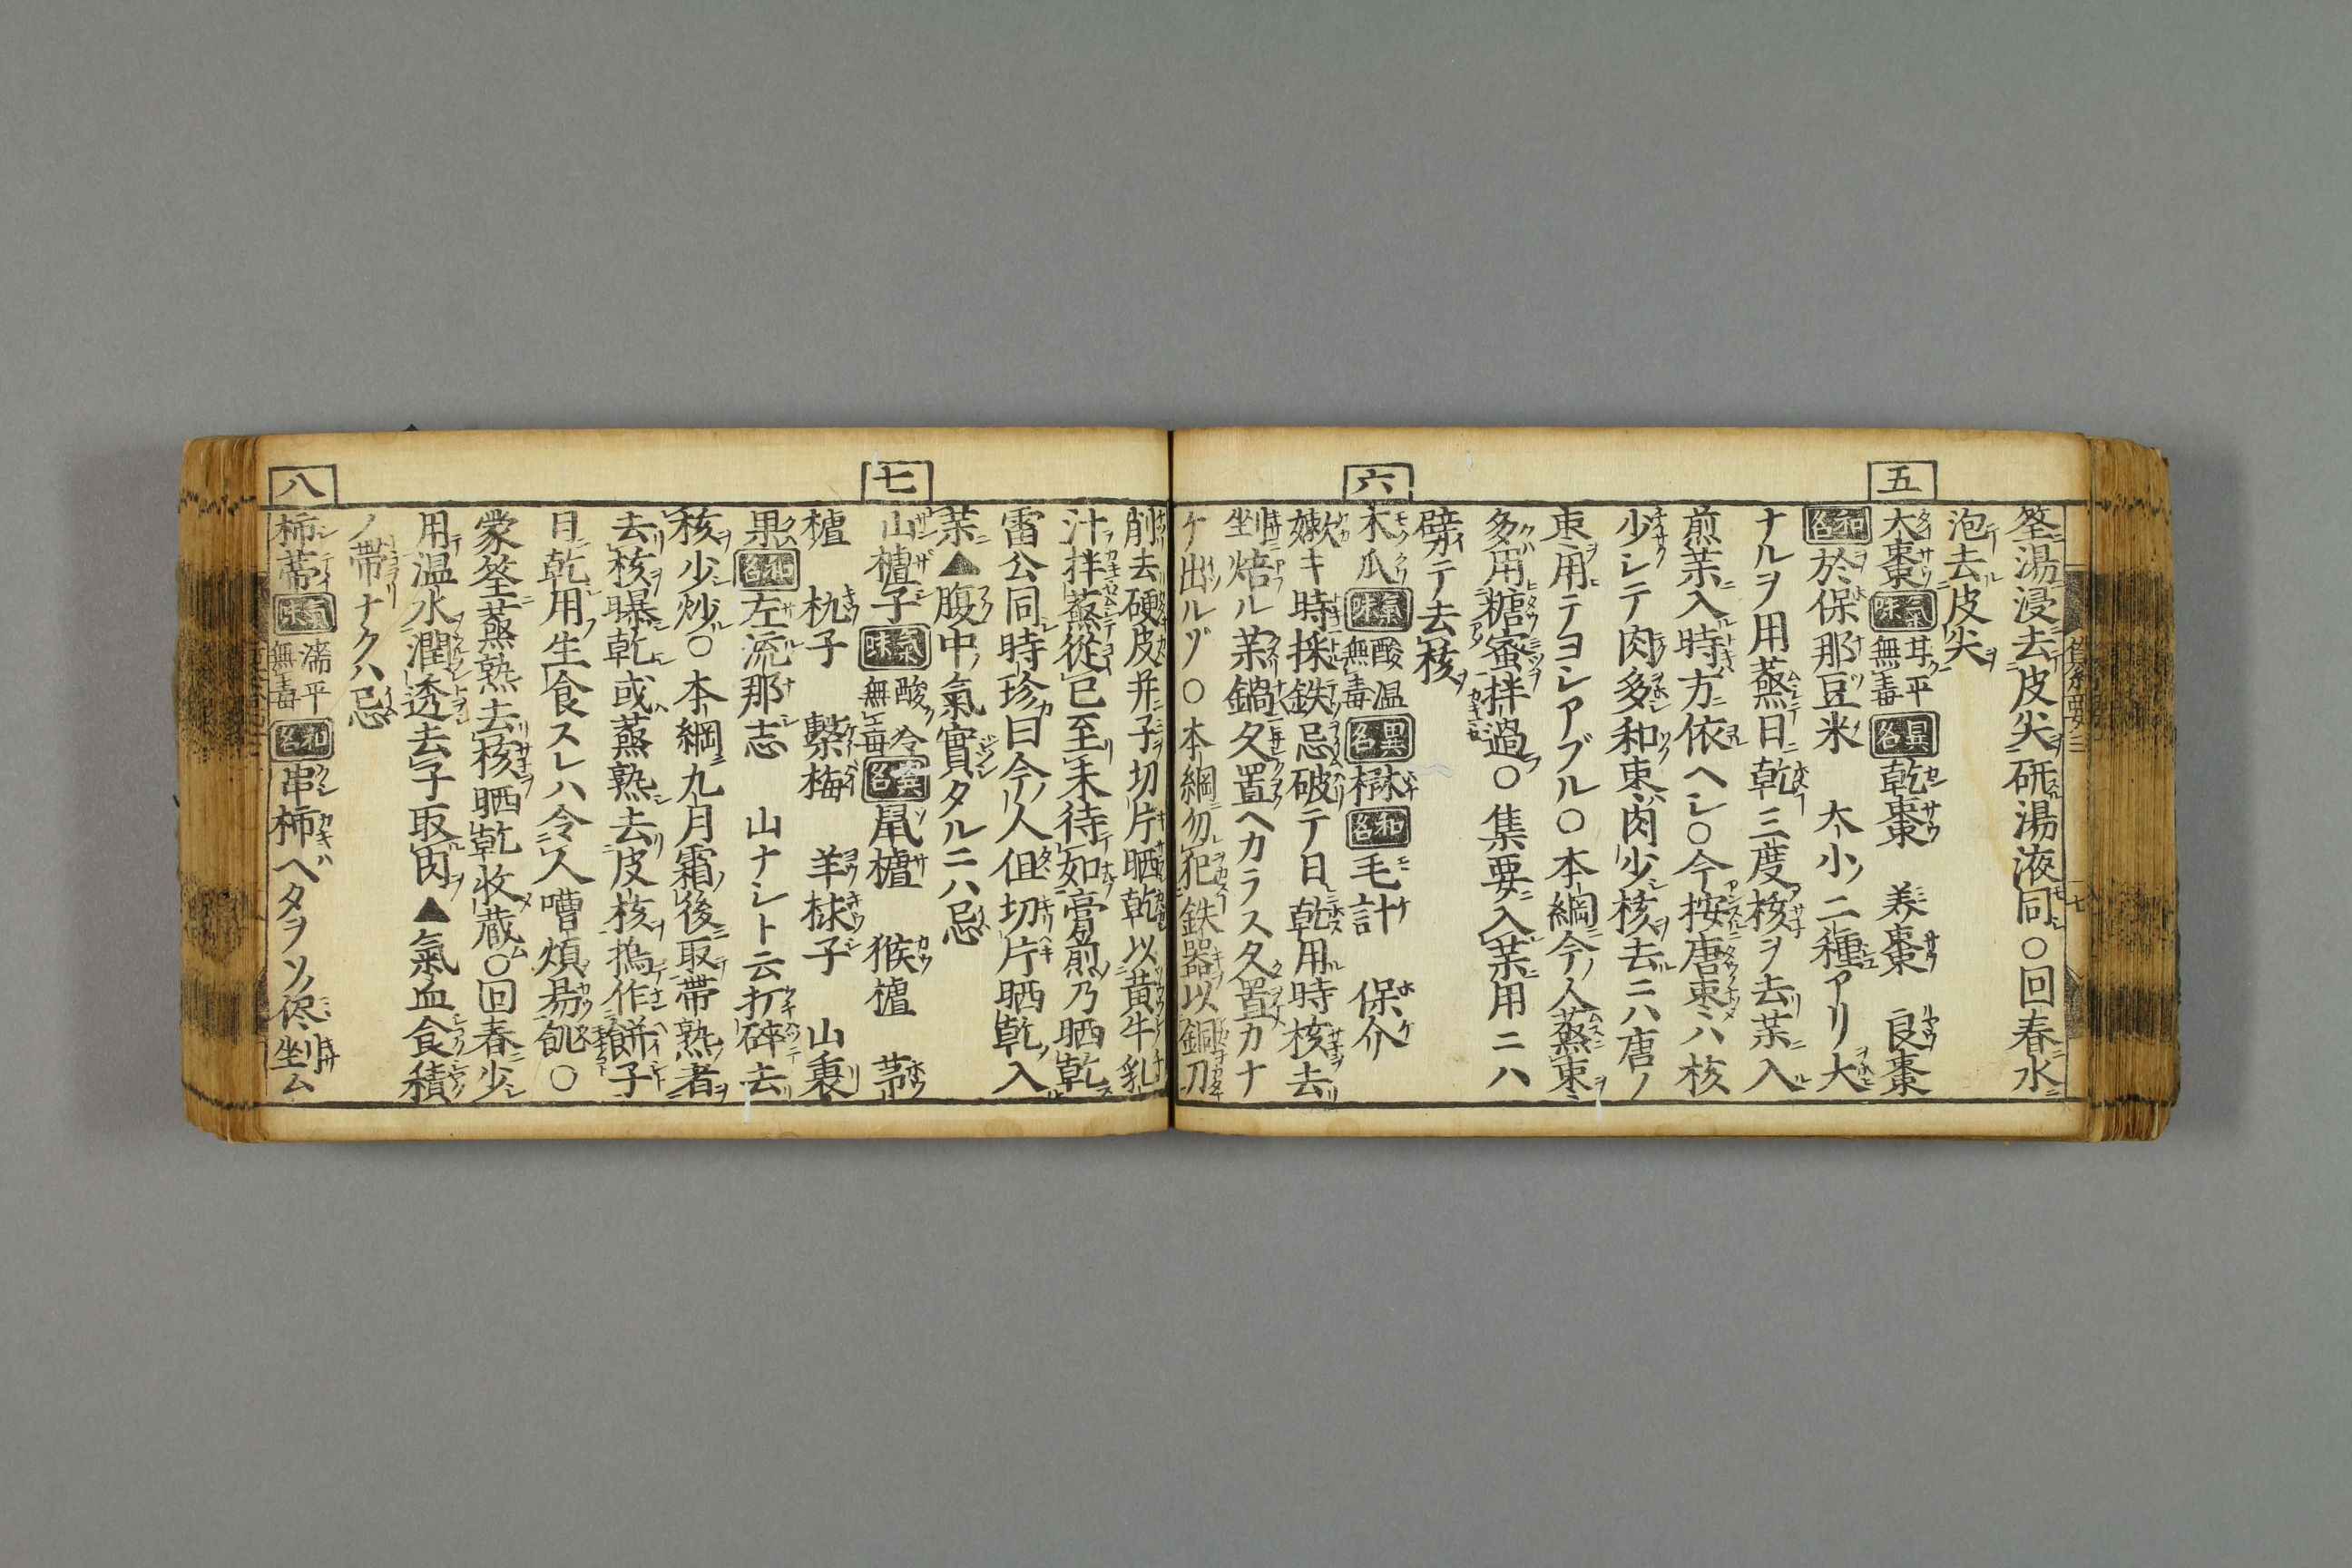 筌湯浸去皮尖研湯液同〇回春水
泡去皮尖
五
大棗 氣味 甘平無毒 異名 乾棗 美棗 良棗
和名 於保那豆米 大小ノ二種アリ大
ナルヲ用蒸日乾三度核ヲ去薬入
煎薬入時方依ヘシ〇今按唐棗ハ核
少シテ肉多和棗肉少核去ニハ唐ノ
棗用テヨシアブル〇本綱今人蒸棗
多用糖蜜拌過〇集要入薬用ニハ
劈テ去核
六
木瓜 氣味 酸温無毒 異名 楙 和名 毛計 保介
嫩キ時採鉄忌破テ日乾用時核去
剉焙ル薬鍋久置ヘカラス久置カナ
ケ出ルゾ〇本綱勿犯鉄器以銅刀
削去硬皮并子切片晒乾以黄牛乳
汁拌蒸從巳至未待如膏煎乃晒乾
雷公同時珍曰今人但切片晒乾入
薬▲腹中氣實タルニハ忌
七
山樝子 氣味 酸冷無毒 異名 鼠樝 猴樝 茅
樝 朹子 繫梅 羊梂子 山裏
果 和名 左流那志 山ナシト云打碎去
核少炒〇本綱九月霜後取帯熟者
去核曝乾或蒸熟去皮核搗作餅子
日乾用生食スレハ令人嘈煩易飢〇
蒙筌蒸熟去核晒乾收蔵〇回春少
用温水潤透去子取肉▲氣血食積
ノ帯ナクハ忌
八
柿蒂 氣味 濇平無毒 和名 串柿ヘタヲソノ侭剉ム